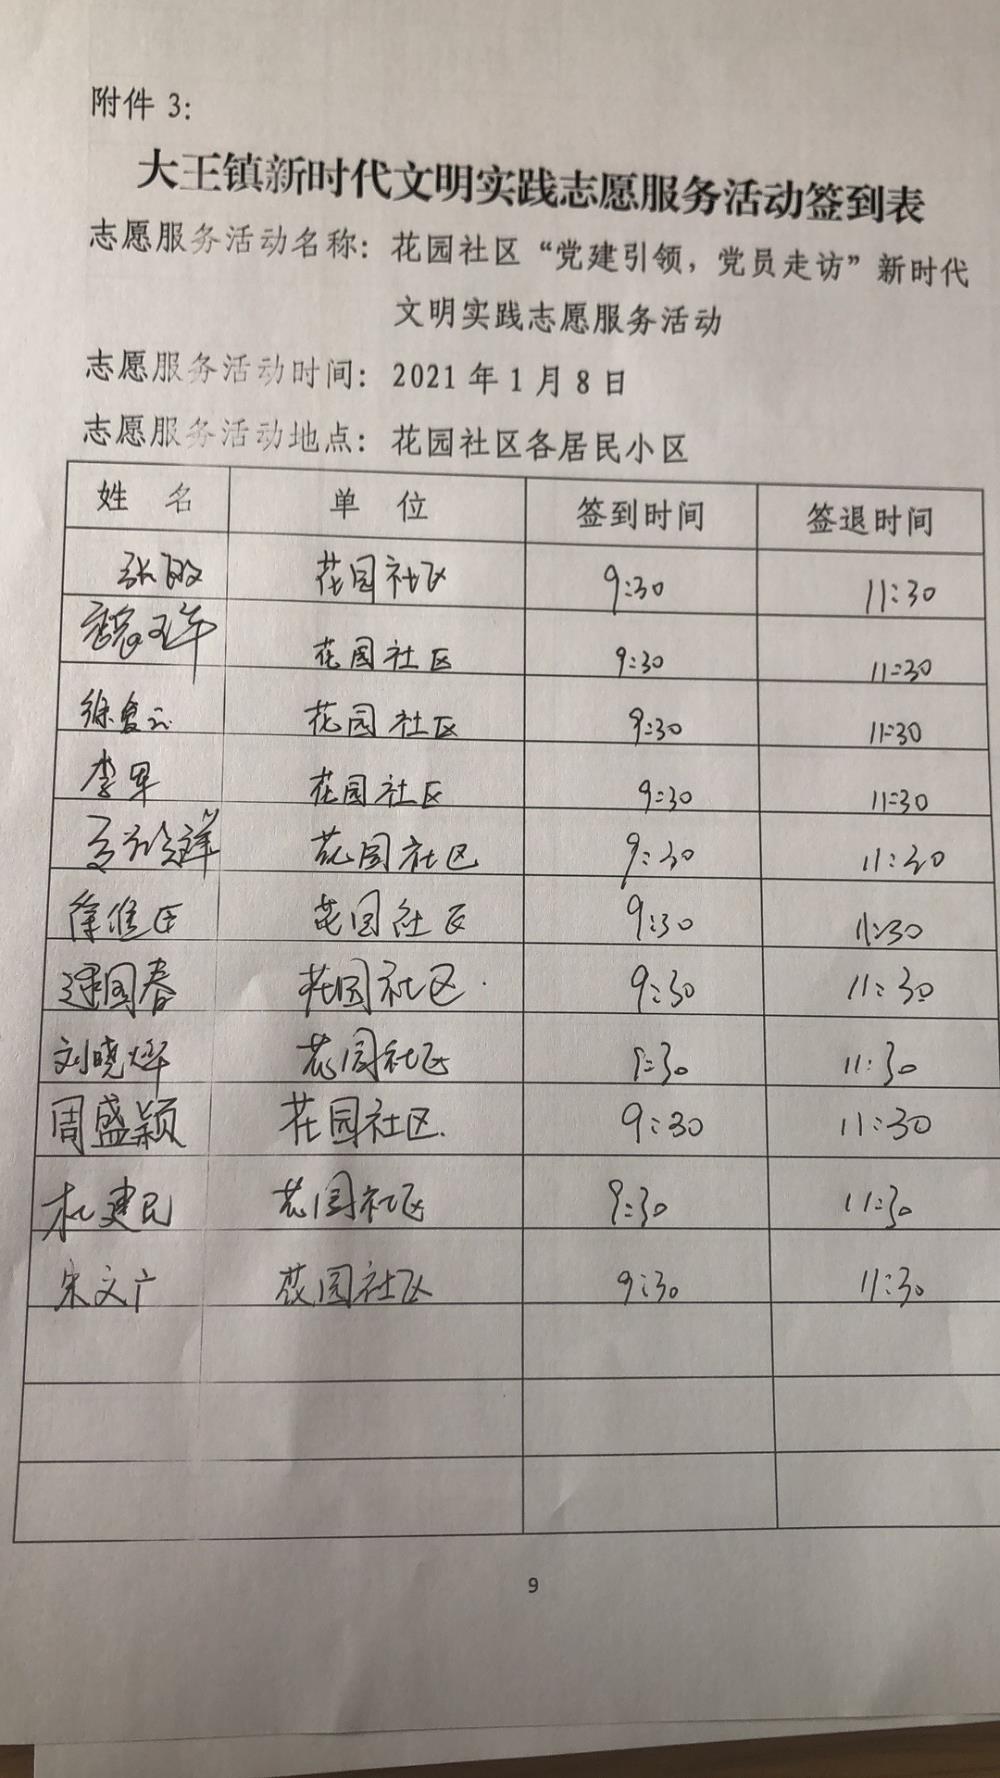 附件 3:
大王镇新时代文明实践志愿服务活动签到表
志愿服务活动名称: 花园社区“党建引领, 党员走访”新时代
文明实践志愿服务活动
志愿服务活动时间: 2021 年 1 月 8 日
志愿服务活动地点: 花园社区各居民小区
姓 名 单 位 签到时间 签退时间
张敏 花园社区 9:30 11:30
花园社区 9:30 11:30
花园社区 9:30 11:30
李军 花园社区 9:30 11:30
花园社区 9:30 11:30
花园社区 9:30 11:30
逯国春 花园社区 9:30 11:30
刘晓烨 花园社区 9:30 11:30
周盛颖 花园社区. 9:30 11:30
杜建民 花园社区 9:30 11:30
宋文广 花园社区 9:30 11:30
9